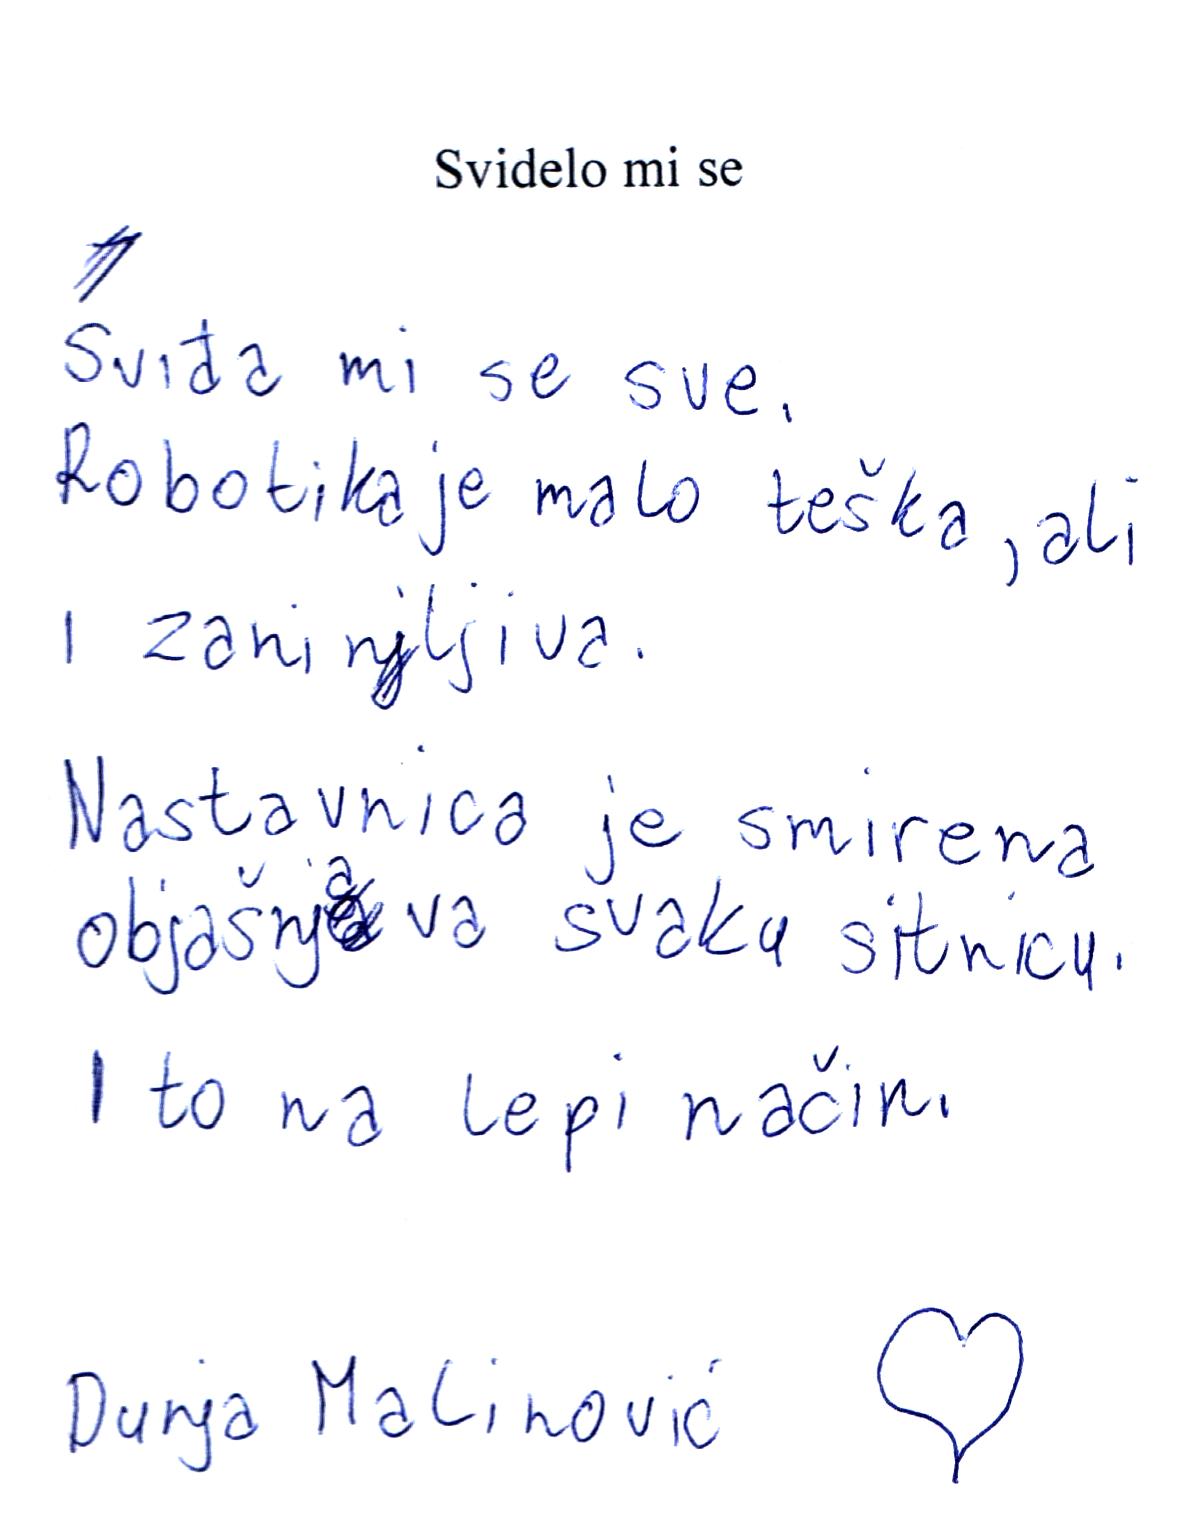 Svidelo mi se
Sviđa mi se sve.
Robotika je malo teška, ali
I zaninljiva.
Nastavnica je smirena
objašnjava svaku sitnicu.
I to na lepi način.
Dunja Malinović